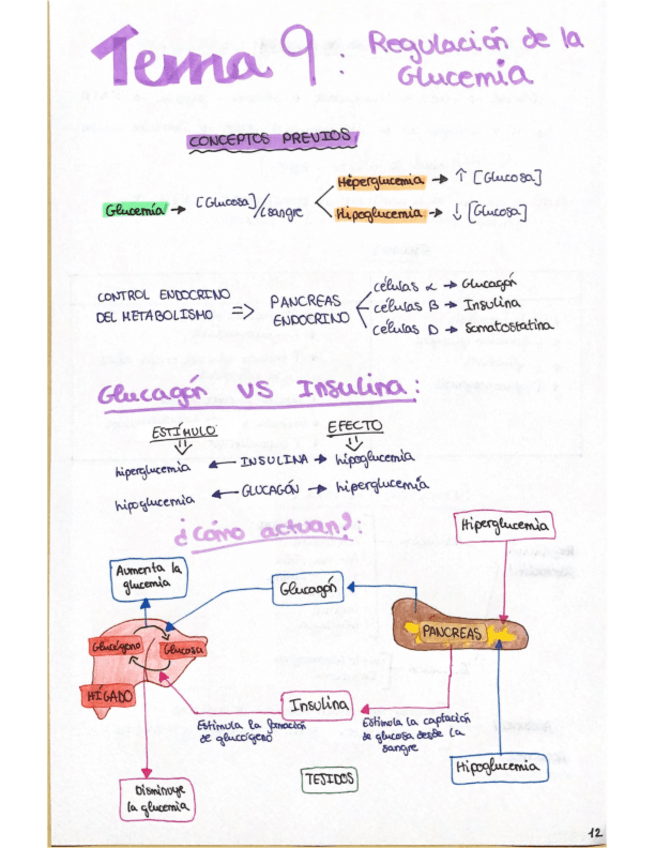 Tema 9: Regulación de la
Glucemia
CONCEPTOS PREVIOS
Glucemia → [Glucosa]/sangre
Hiperglucemia → ↑ [Glucosa]
Hipoglucemia → ↓ [Glucosa]
CONTROL ENDOCRINO
DEL METABOLISMO
=> PANCREAS
ENDOCRINO
células α → Glucagón
células B → Insulina
células D → Somatostatina
Glucagón VS Insulina:
ESTÍMULO EFECTO
hiperglucemia ← INSULINA → hipoglucemia
hipoglucemia ← GLUCAGÓN → hiperglucemia
¿Cómo actuan?:
Hiperglucemia
Aumenta la
glucemia
Glucagón
PANCREAS
Glucógeno
Glucosa
HÍGADO
Insulina
Estimula la formación
de glucógeno
Estimula la captación
de glucosa desde la
sangre
Hipoglucemia
TEJIDOS
Disminuye
la glucemia
12